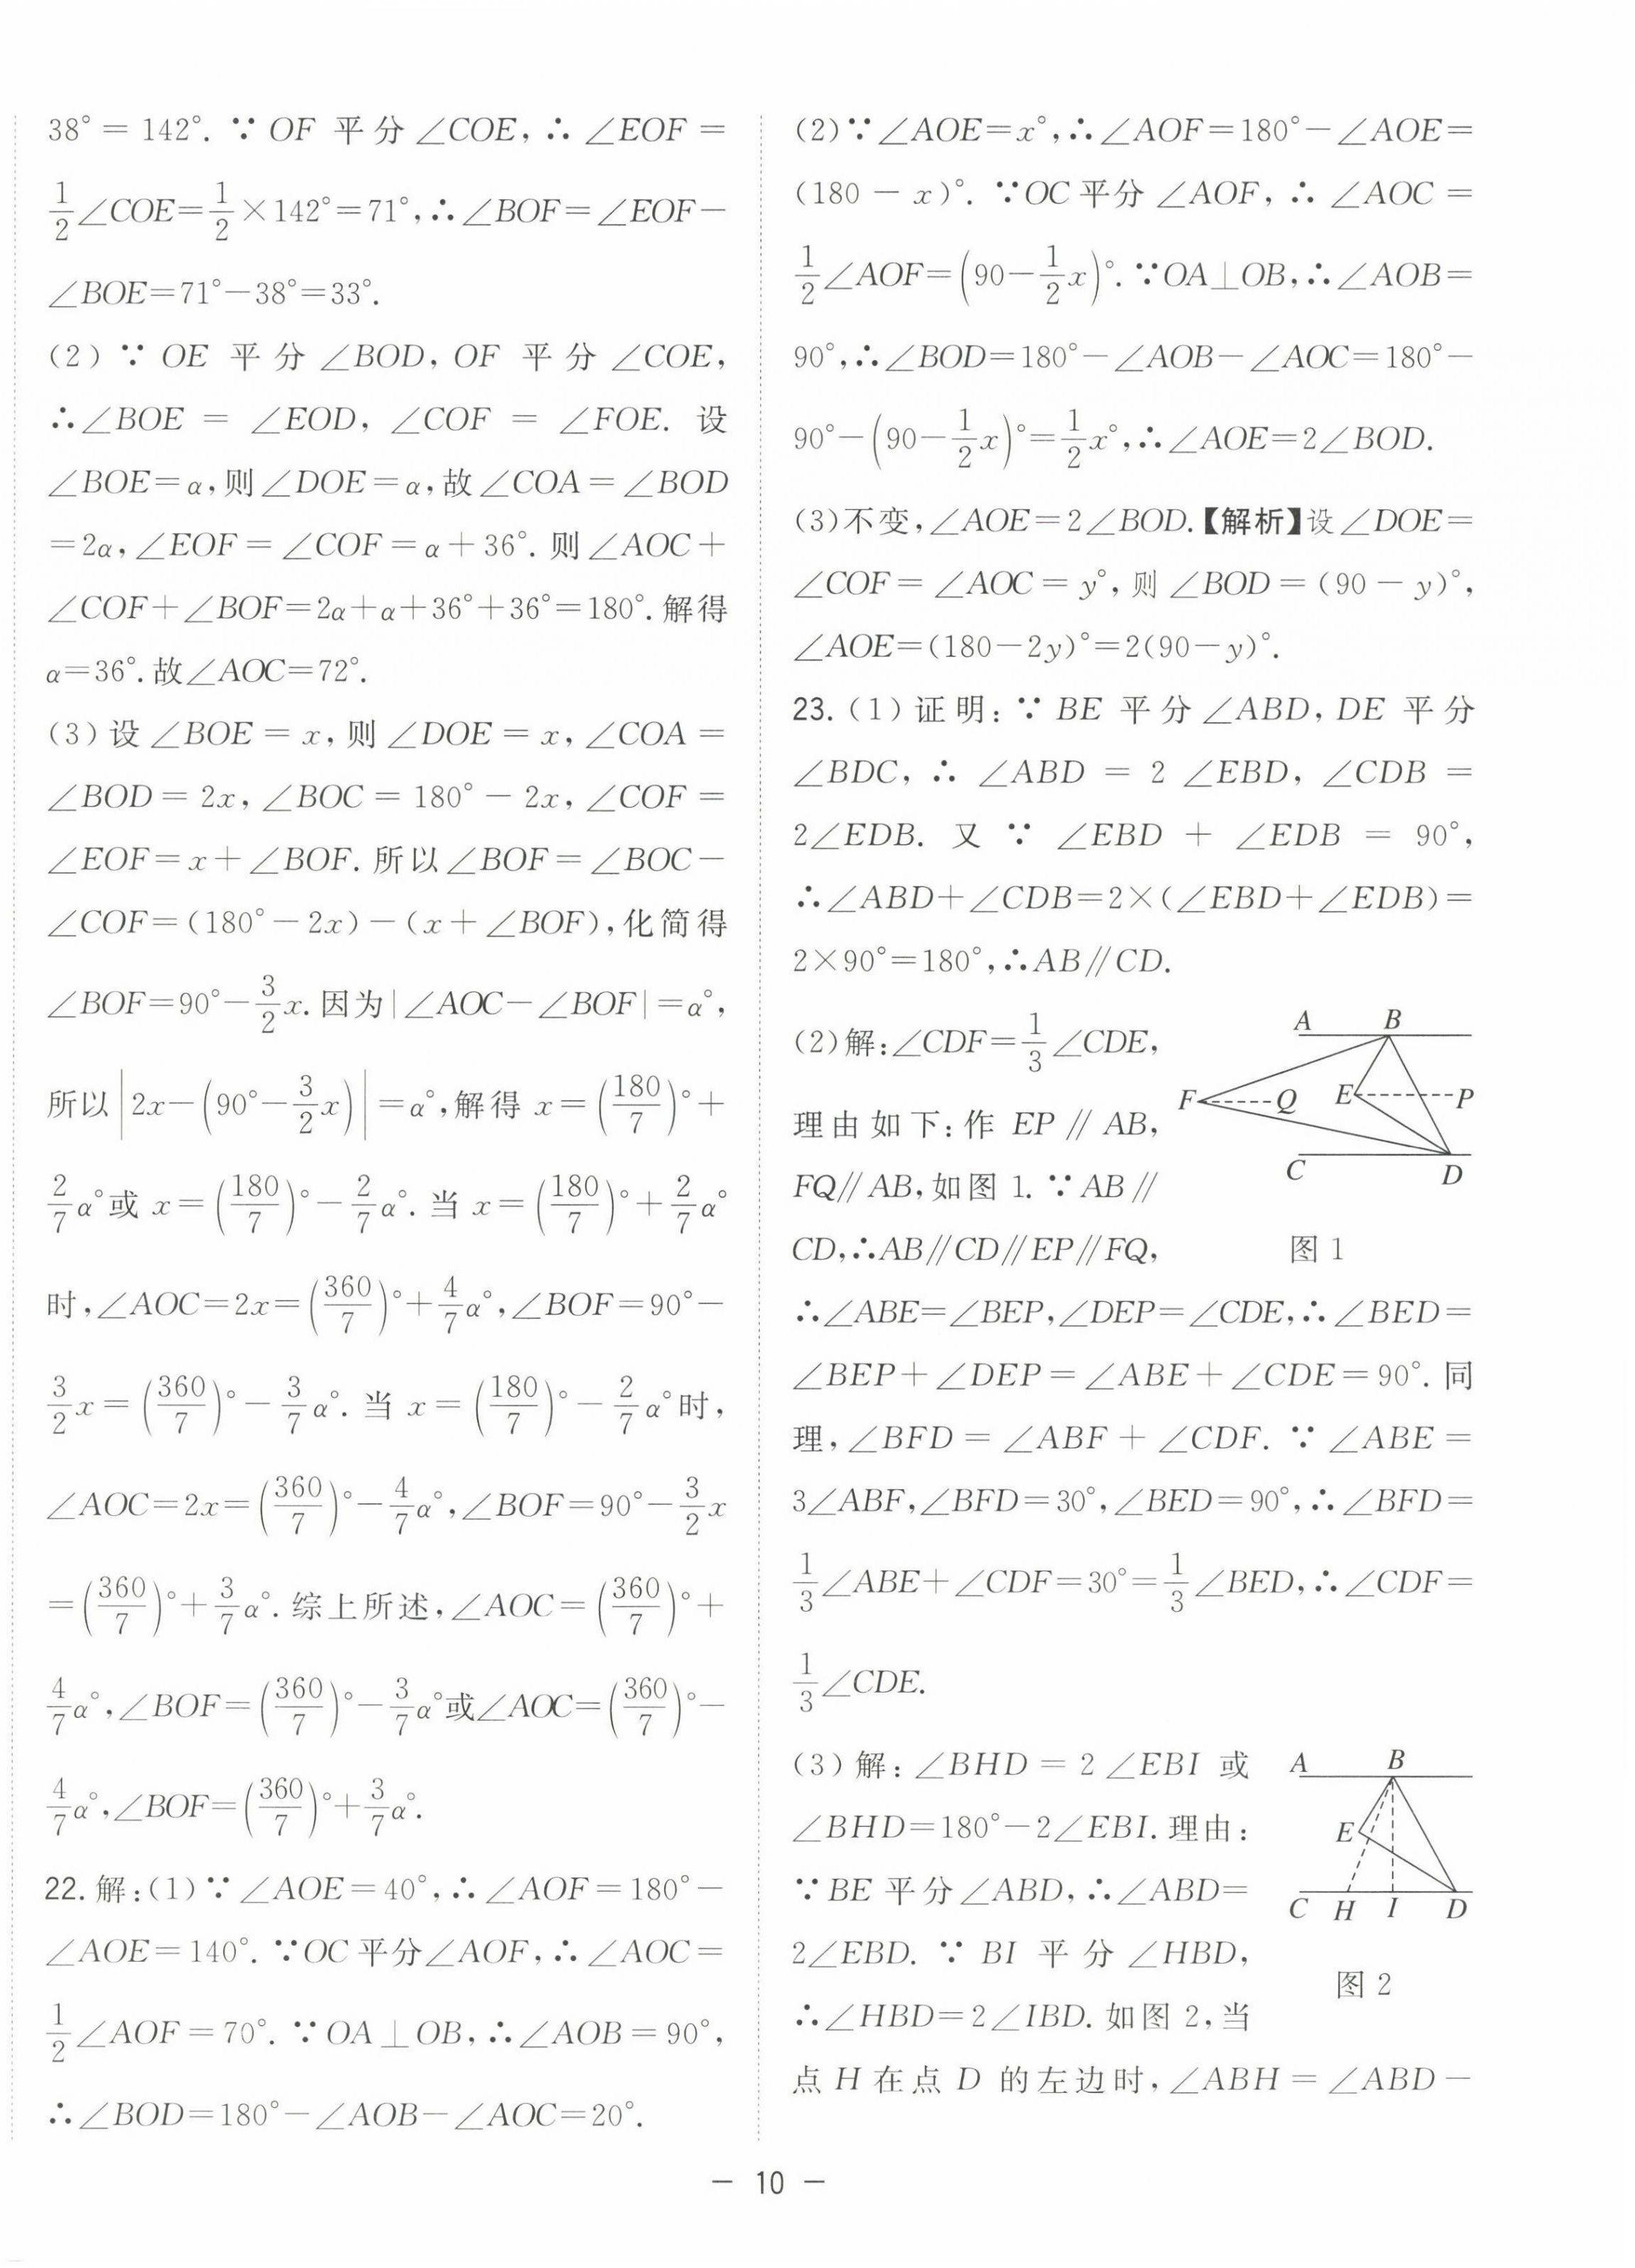 38°=142°.∵OF 平分∠COE,∴∠EOF=
1/2∠COE=1/2×142°=71°,∴∠BOF=∠EOF-
∠BOE=71°-38°=33°.
(2)∵OE 平分∠BOD,OF 平分∠COE,
∴∠BOE=∠EOD,∠COF=∠FOE.设
∠BOE=α,则∠DOE=α,故∠COA=∠BOD
=2α,∠EOF=∠COF=α+36°.则∠AOC+
∠COF+∠BOF=2α+α+36°+36°=180°.解得
α=36°.故∠AOC=72°.
(3)设∠BOE=x,则∠DOE=x,∠COA=
∠BOD=2x,∠BOC=180°-2x,∠COF=
∠EOF=x+∠BOF.所以∠BOF=∠BOC-
∠COF=(180°-2x)-(x+∠BOF),化简得
∠BOF=90°-3/2x.因为|∠AOC-∠BOF|=α°,
所以|2x-(90°-3/2x)|=α°,解得 x=(180/7)°+
2/7α°或 x=(180/7)°-2/7α°.当 x=(180/7)°+2/7α°
时,∠AOC=2x=(360/7)°+4/7α°,∠BOF=90°-
3/2x=(360/7)°-3/7α°.当 x=(180/7)°-2/7α°时,
∠AOC=2x=(360/7)°-4/7α°,∠BOF=90°-3/2x
=(360/7)°+3/7α°.综上所述,∠AOC=(360/7)°+
4/7α°,∠BOF=(360/7)°-3/7α°或∠AOC=(360/7)°-
4/7α°,∠BOF=(360/7)°+3/7α°.
22.解:(1)∵∠AOE=40°,∴∠AOF=180°-
∠AOE=140°.∵OC平分∠AOF,∴∠AOC=
1/2∠AOF=70°.∵OA⊥OB,∴∠AOB=90°,
∴∠BOD=180°-∠AOB-∠AOC=20°.
(2)∵∠AOE=x°,∴∠AOF=180°-∠AOE=
(180-x)°.∵OC平分∠AOF,∴∠AOC=
1/2∠AOF=(90-1/2x)°.∵OA⊥OB,∴∠AOB=
90°,∴∠BOD=180°-∠AOB-∠AOC=180°-
90°-(90-1/2x)°=1/2x°,∴∠AOE=2∠BOD.
(3)不变,∠AOE=2∠BOD.【解析】设∠DOE=
∠COF=∠AOC=y°,则∠BOD=(90-y)°,
∠AOE=(180-2y)°=2(90-y)°.
23.(1)证明:∵BE 平分∠ABD,DE 平分
∠BDC,∴∠ABD=2∠EBD,∠CDB=
2∠EDB.又∵∠EBD+∠EDB=90°,
∴∠ABD+∠CDB=2×(∠EBD+∠EDB)=
2×90°=180°,∴AB∥CD.
(2)解:∠CDF=1/3∠CDE,
理由如下:作 EP∥AB,
FQ∥AB,如图1.∵AB∥
CD,∴AB∥CD∥EP∥FQ,
A B
F Q E P
C D
图1
∴∠ABE=∠BEP,∠DEP=∠CDE,∴∠BED=
∠BEP+∠DEP=∠ABE+∠CDE=90°.同
理,∠BFD=∠ABF+∠CDF.∵∠ABE=
3∠ABF,∠BFD=30°,∠BED=90°,∴∠BFD=
1/3∠ABE+∠CDF=30°=1/3∠BED,∴∠CDF=
1/3∠CDE.
(3)解:∠BHD=2∠EBI 或
∠BHD=180°-2∠EBI.理由:
∵BE 平分∠ABD,∴∠ABD=
2∠EBD.∵BI 平分∠HBD,
∴∠HBD=2∠IBD.如图2,当
A B
E
C H I D
图2
点 H 在点 D 的左边时,∠ABH=∠ABD-
— 10 —